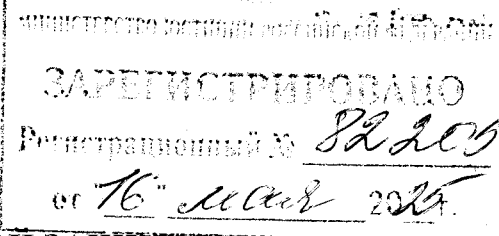 МИНИСТЕРСТВО ЮСТИЦИИ РОССИЙСКОЙ ФЕДЕРАЦИИ
ЗАРЕГИСТРИРОВАНО
Регистрационный № 82205
от "16" мая 2025г.